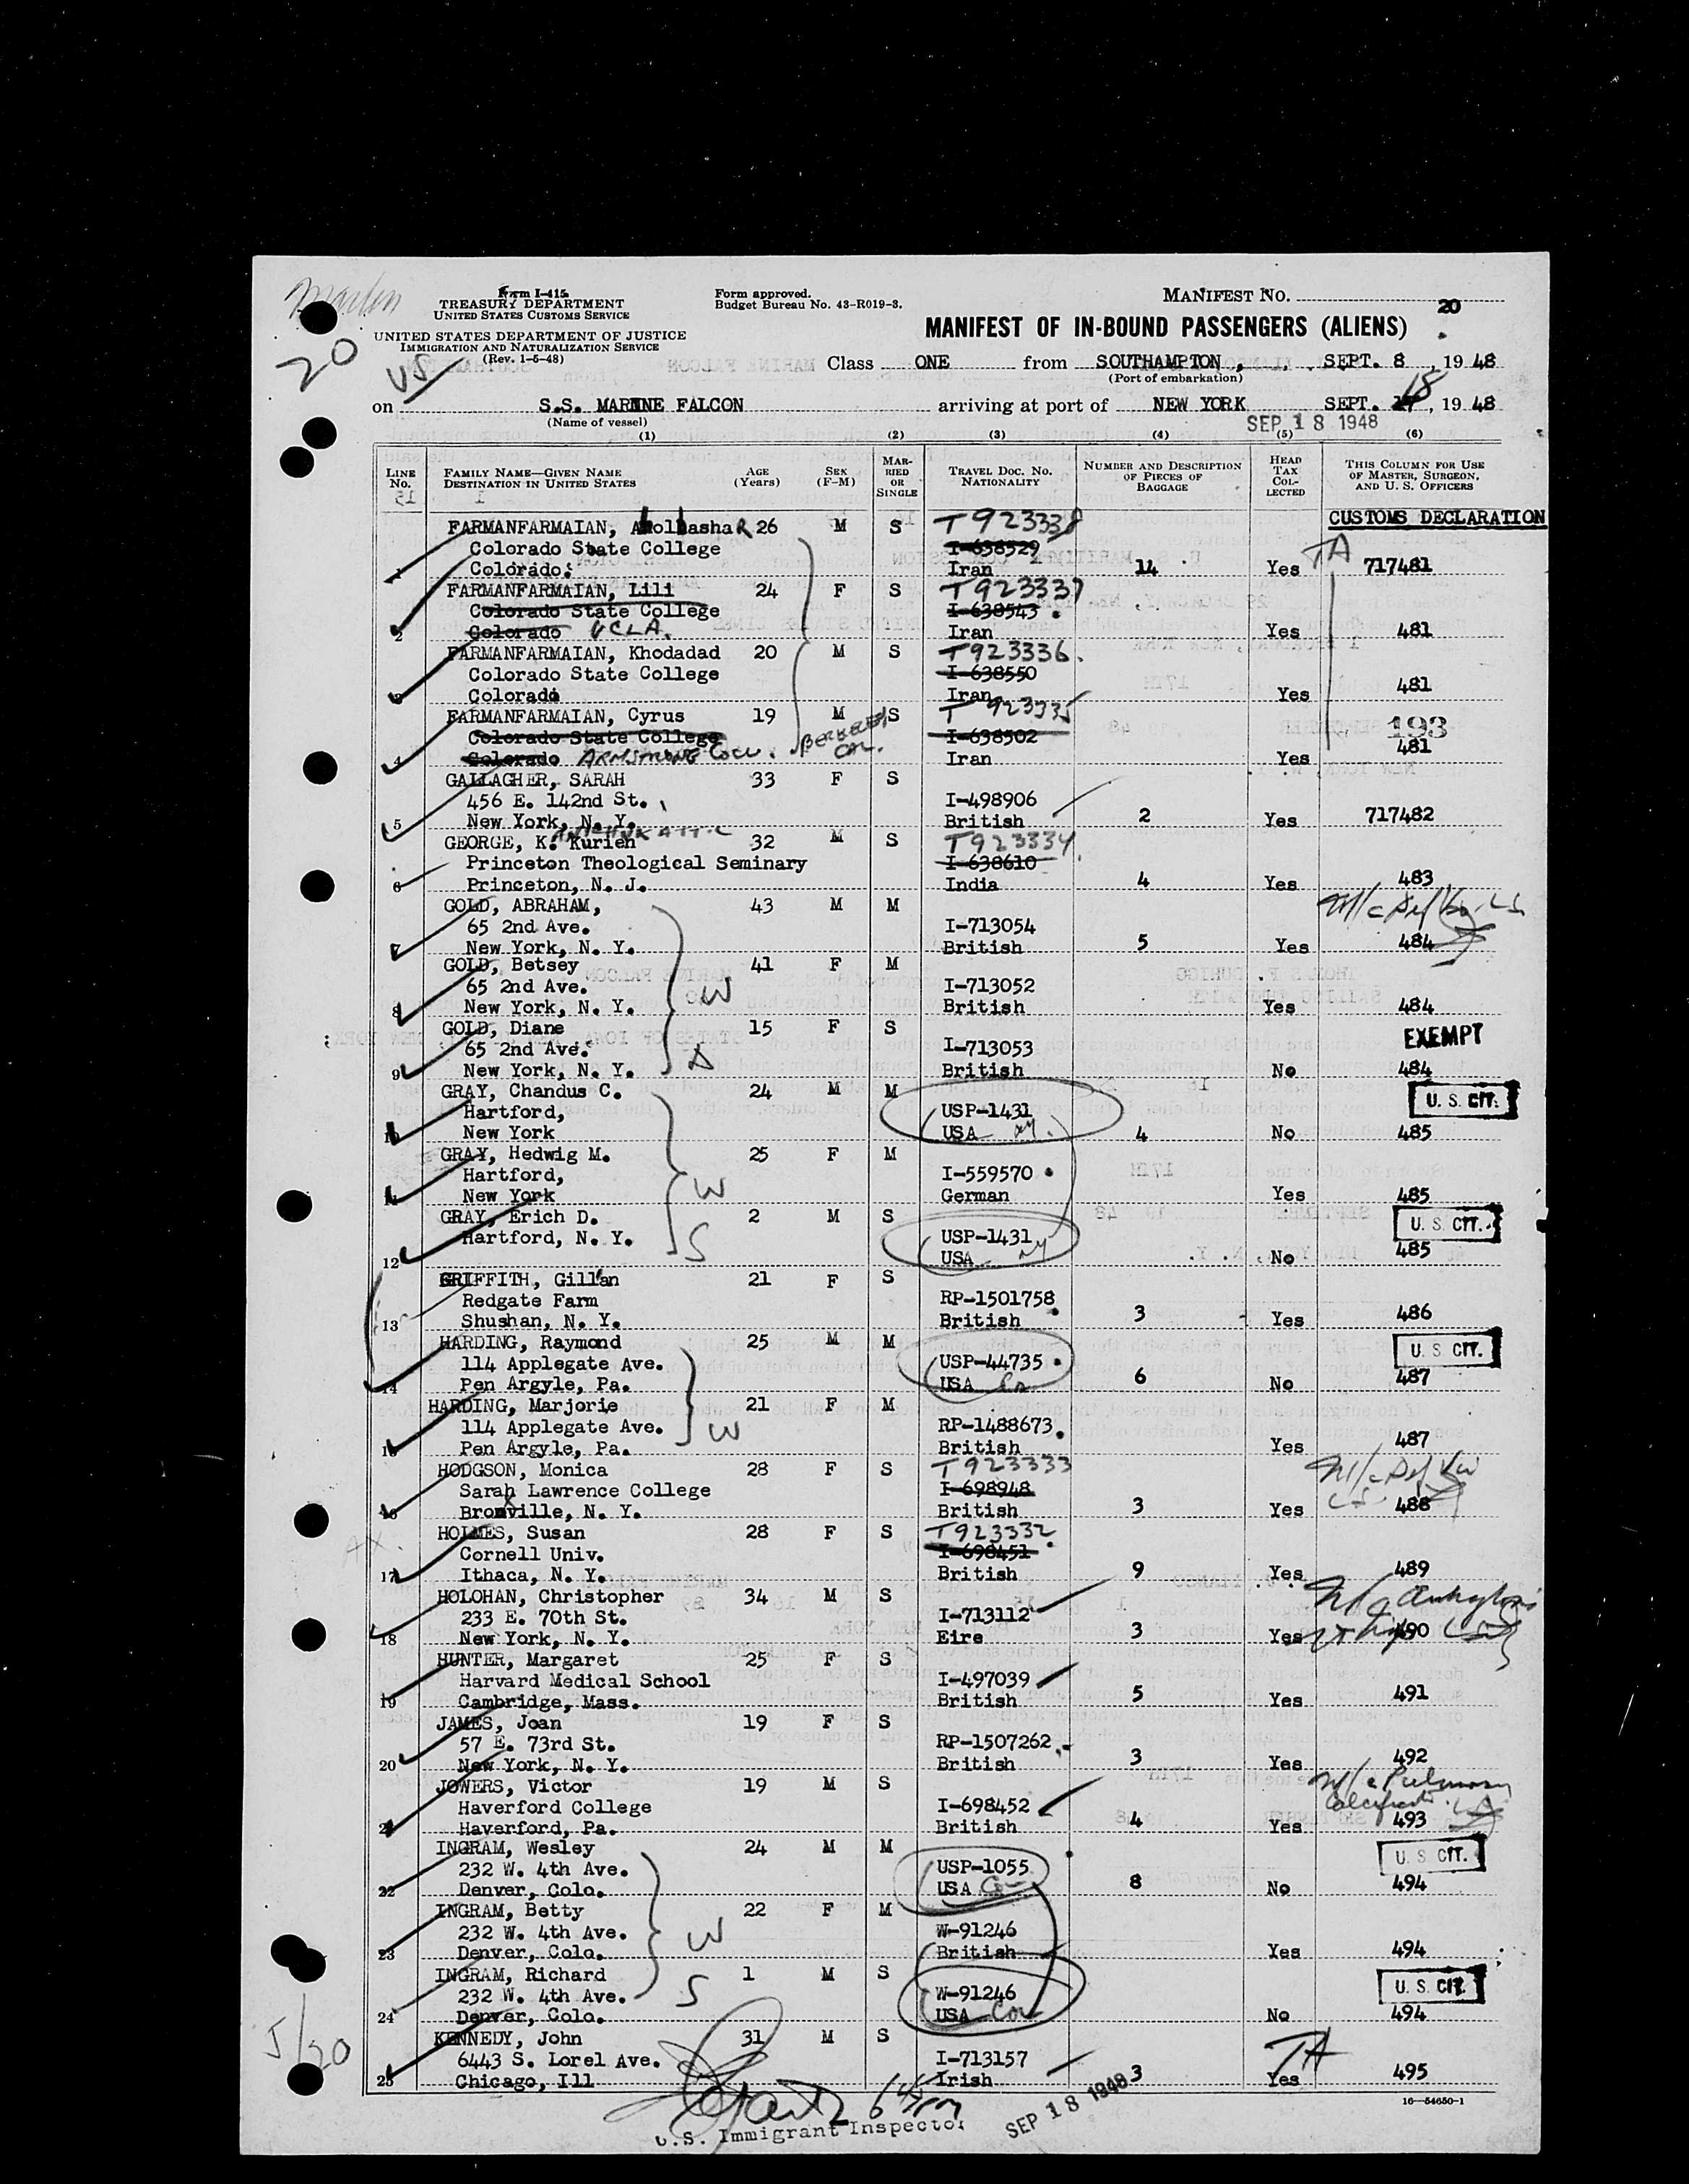 Form I-415
TREASURY DEPARTMENT
UNITED STATES CUSTOMS SERVICE
UNITED STATES DEPARTMENT OF JUSTICE
IMMIGRATION AND NATURALIZATION SERVICE
(Rev. 1-5-48)
Form approved.
Budget Bureau No. 43-R019-3.
MANIFEST NO.
20
20
US
MANIFEST OF IN-BOUND PASSENGERS (ALIENS)
Class ONE from SOUTHAMPTON, SEPT. 8, 1948
(Port of embarkation)
on S.S. MARINE FALCON arriving at port of NEW YORK SEPT. 18, 1948
(Name of vessel)
SEP 18 1948
(1) (2) (3) (4) (5) (6)
LINE No. FAMILY NAME—GIVEN NAME DESTINATION IN UNITED STATES AGE (Years) SEX (F-M) MARRIED OR SINGLE TRAVEL DOC. NO. NATIONALITY NUMBER AND DESCRIPTION OF PIECES OF BAGGAGE HEAD TAX COLLECTED THIS COLUMN FOR USE OF MASTER, SURGEON, AND U. S. OFFICERS
CUSTOMS DECLARATION
FARMANFARMAIAN, Abolbashar 26 M S T923338
Colorado State College I-638529
1 Colorado Iran 14 Yes TA 717481
FARMANFARMAIAN, Lili 24 F S T923337
Colorado State College I-638543
2 Colorado UCLA. Iran Yes 481
FARMANFARMAIAN, Khodadad 20 M S T923336
Colorado State College I-638550
3 Colorado Iran Yes 481
FARMANFARMAIAN, Cyrus 19 M S T923335
Colorado State College I-638502 193
4 Colorado ARMSTRONG COLL. BERKELEY CAL. Iran Yes 481
GALLAGHER, SARAH 33 F S
456 E. 142nd St. I-498906
5 New York, N. Y. British 2 Yes 717482
GEORGE, K. Kurien 32 M S T923334
Princeton Theological Seminary I-638610
6 Princeton, N. J. India 4 Yes 483
GOLD, ABRAHAM, 43 M M
65 2nd Ave. I-713054
7 New York, N. Y. British 5 Yes 484
GOLD, Betsey 41 F M
65 2nd Ave. W I-713052
8 New York, N. Y. British Yes 484
GOLD, Diane 15 F S EXEMPT
65 2nd Ave. I-713053
9 New York, N. Y. British No 484
GRAY, Chandus C. 24 M M U. S. CIT.
Hartford, USP-1431
10 New York USA 4 No 485
GRAY, Hedwig M. 25 F M
Hartford, W I-559570
11 New York German Yes 485
GRAY, Erich D. 2 M S U. S. CIT.
Hartford, N. Y. S USP-1431
12 USA No 485
GRIFFITH, Gillian 21 F S
Redgate Farm RP-1501758
13 Shushan, N. Y. British 3 Yes 486
HARDING, Raymond 25 M M U. S. CIT.
114 Applegate Ave. USP-44735
14 Pen Argyle, Pa. USA 6 No 487
HARDING, Marjorie 21 F M
114 Applegate Ave. W RP-1488673
15 Pen Argyle, Pa. British Yes 487
HODGSON, Monica 28 F S T923333
Sarah Lawrence College I-698948
16 Bronxville, N. Y. British 3 Yes 488
HOLMES, Susan 28 F S T923332
Cornell Univ. I-698451
17 Ithaca, N. Y. British 9 Yes 489
HOLOHAN, Christopher 34 M S
233 E. 70th St. I-713112
18 New York, N. Y. Eire 3 Yes 490
HUNTER, Margaret 25 F S
Harvard Medical School I-497039
19 Cambridge, Mass. British 5 Yes 491
JAMES, Joan 19 F S
57 E. 73rd St. RP-1507262
20 New York, N. Y. British 3 Yes 492
JOWERS, Victor 19 M S
Haverford College I-698452
21 Haverford, Pa. British 4 Yes 493
INGRAM, Wesley 24 M M U. S. CIT.
232 W. 4th Ave. USP-1055
22 Denver, Colo. USA 8 No 494
INGRAM, Betty 22 F M
232 W. 4th Ave. W W-91246
23 Denver, Colo. British Yes 494
INGRAM, Richard 1 M S U. S. CIT.
232 W. 4th Ave. S W-91246
24 Denver, Colo. USA No 494
KENNEDY, John 31 M S
6443 S. Lorel Ave. I-713157 TA
25 Chicago, Ill Irish 3 Yes 495
5/20
16—54650-1
SEP 18 1948
U.S. Immigrant Inspector